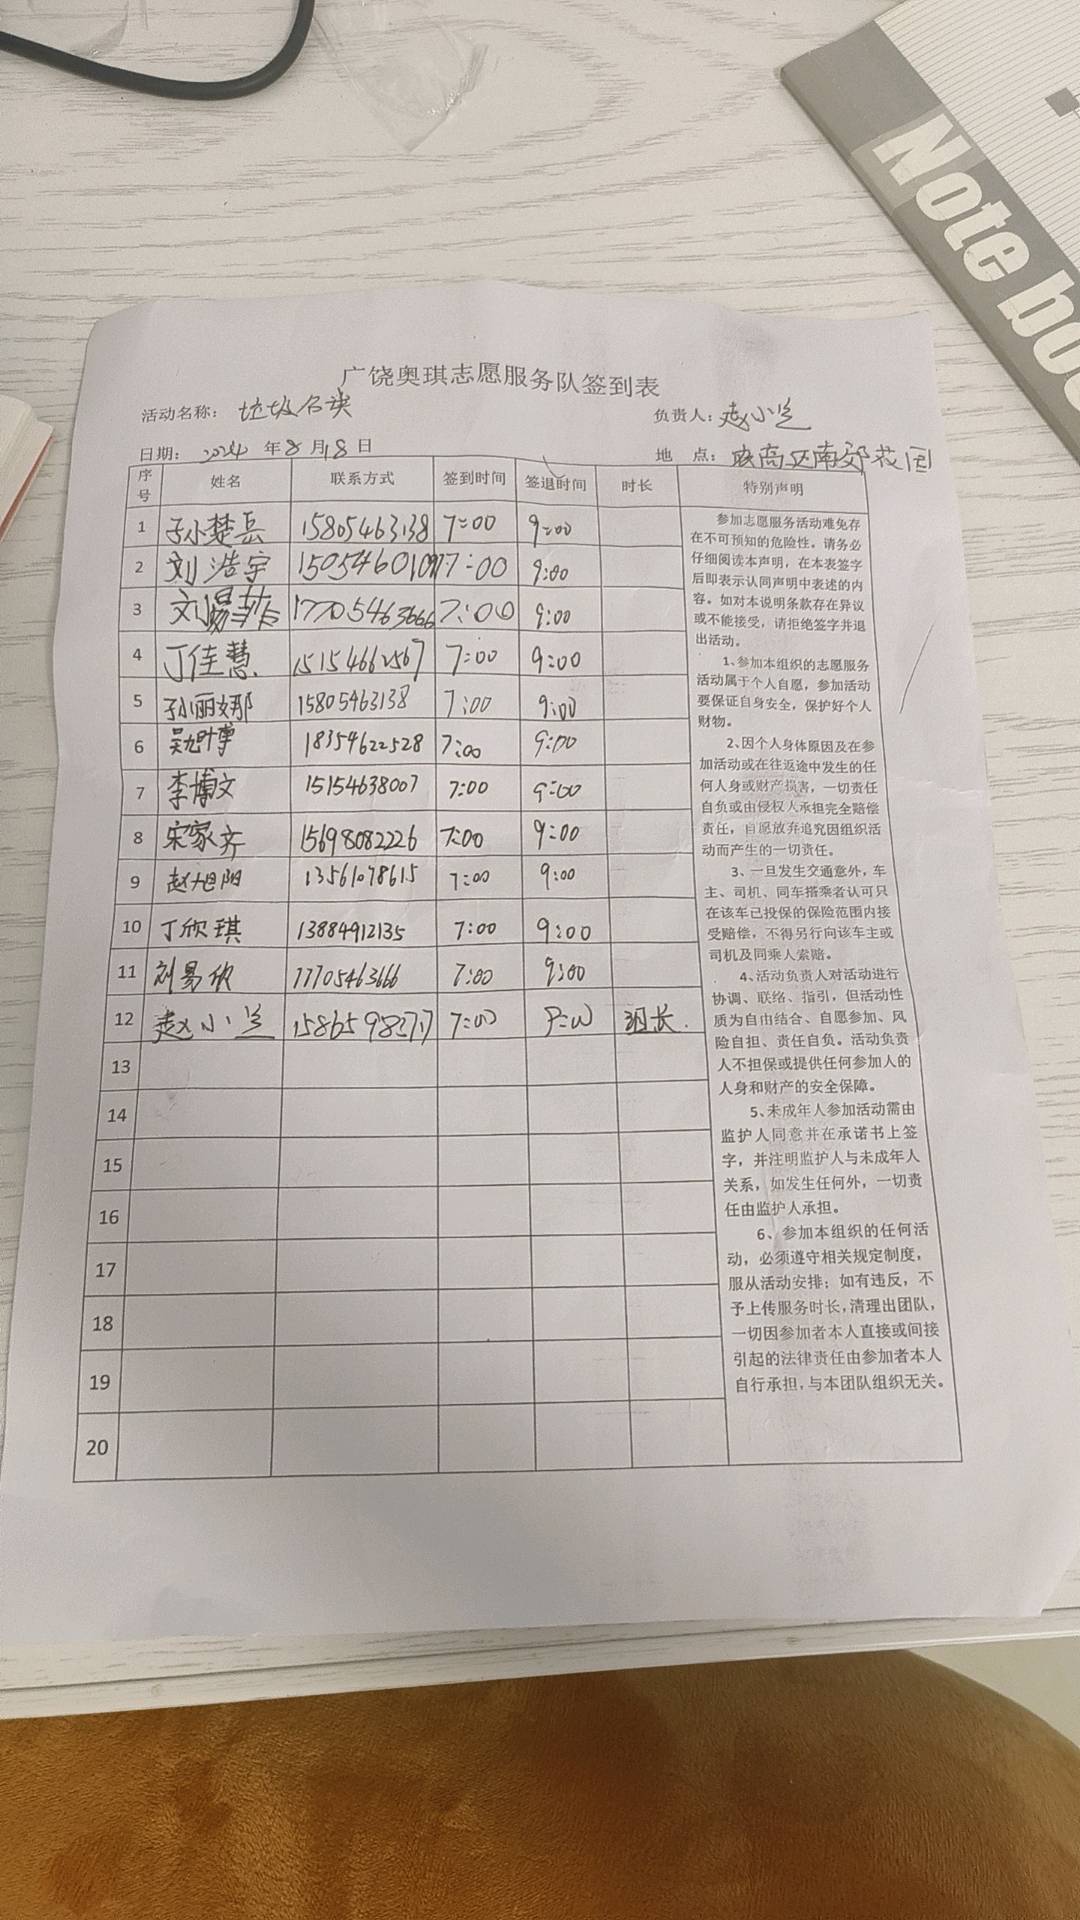 Note bo
广饶奥琪志愿服务队签到表
活动名称: 垃圾分类 负责人: 赵小兰
日期: 2024 年 8 月 18 日 地 点: 南郊花园
序号 姓名 联系方式 签到时间 签退时间 时长 特别声明
1 孙楚岳 15805463138 7:00 9:00
2 刘浩宇 7:00 9:00
3 17705463666 7:00 9:00
4 丁佳慧 15154662567 7:00 9:00
5 孙丽娜 15805463138 7:00 9:00
6 18354622528 7:00 9:00
7 李博文 15154638007 7:00 9:00
8 宋家齐 15698082226 7:00 9:00
9 赵旭阳 13561078615 7:00 9:00
10 丁欣琪 13884912135 7:00 9:00
11 刘易欣 17705463666 7:00 9:00
12 赵小兰 7:00 9:00 组长.
13
14
15
16
17
18
19
20
参加志愿服务活动难免存
在不可预知的危险性。请务必
仔细阅读本声明，在本表签字
后即表示认同声明中表述的内
容。如对本说明条款存在异议
或不能接受，请拒绝签字并退
出活动。
1、参加本组织的志愿服务
活动属于个人自愿，参加活动
要保证自身安全，保护好个人
财物。
2、因个人身体原因及在参
加活动或在往返途中发生的任
何人身或财产损害，一切责任
自负或由侵权人承担完全赔偿
责任，自愿放弃追究因组织活
动而产生的一切责任。
3、一旦发生交通意外，车
主、司机、同车搭乘者认可只
在该车已投保的保险范围内接
受赔偿，不得另行向该车主或
司机及同乘人索赔。
4、活动负责人对活动进行
协调、联络、指引，但活动性
质为自由结合、自愿参加、风
险自担、责任自负。活动负责
人不担保或提供任何参加人的
人身和财产的安全保障。
5、未成年人参加活动需由
监护人同意并在承诺书上签
字，并注明监护人与未成年人
关系，如发生任何外，一切责
任由监护人承担。
6、参加本组织的任何活
动，必须遵守相关规定制度，
服从活动安排；如有违反，不
予上传服务时长，清理出团队，
一切因参加者本人直接或间接
引起的法律责任由参加者本人
自行承担，与本团队组织无关。